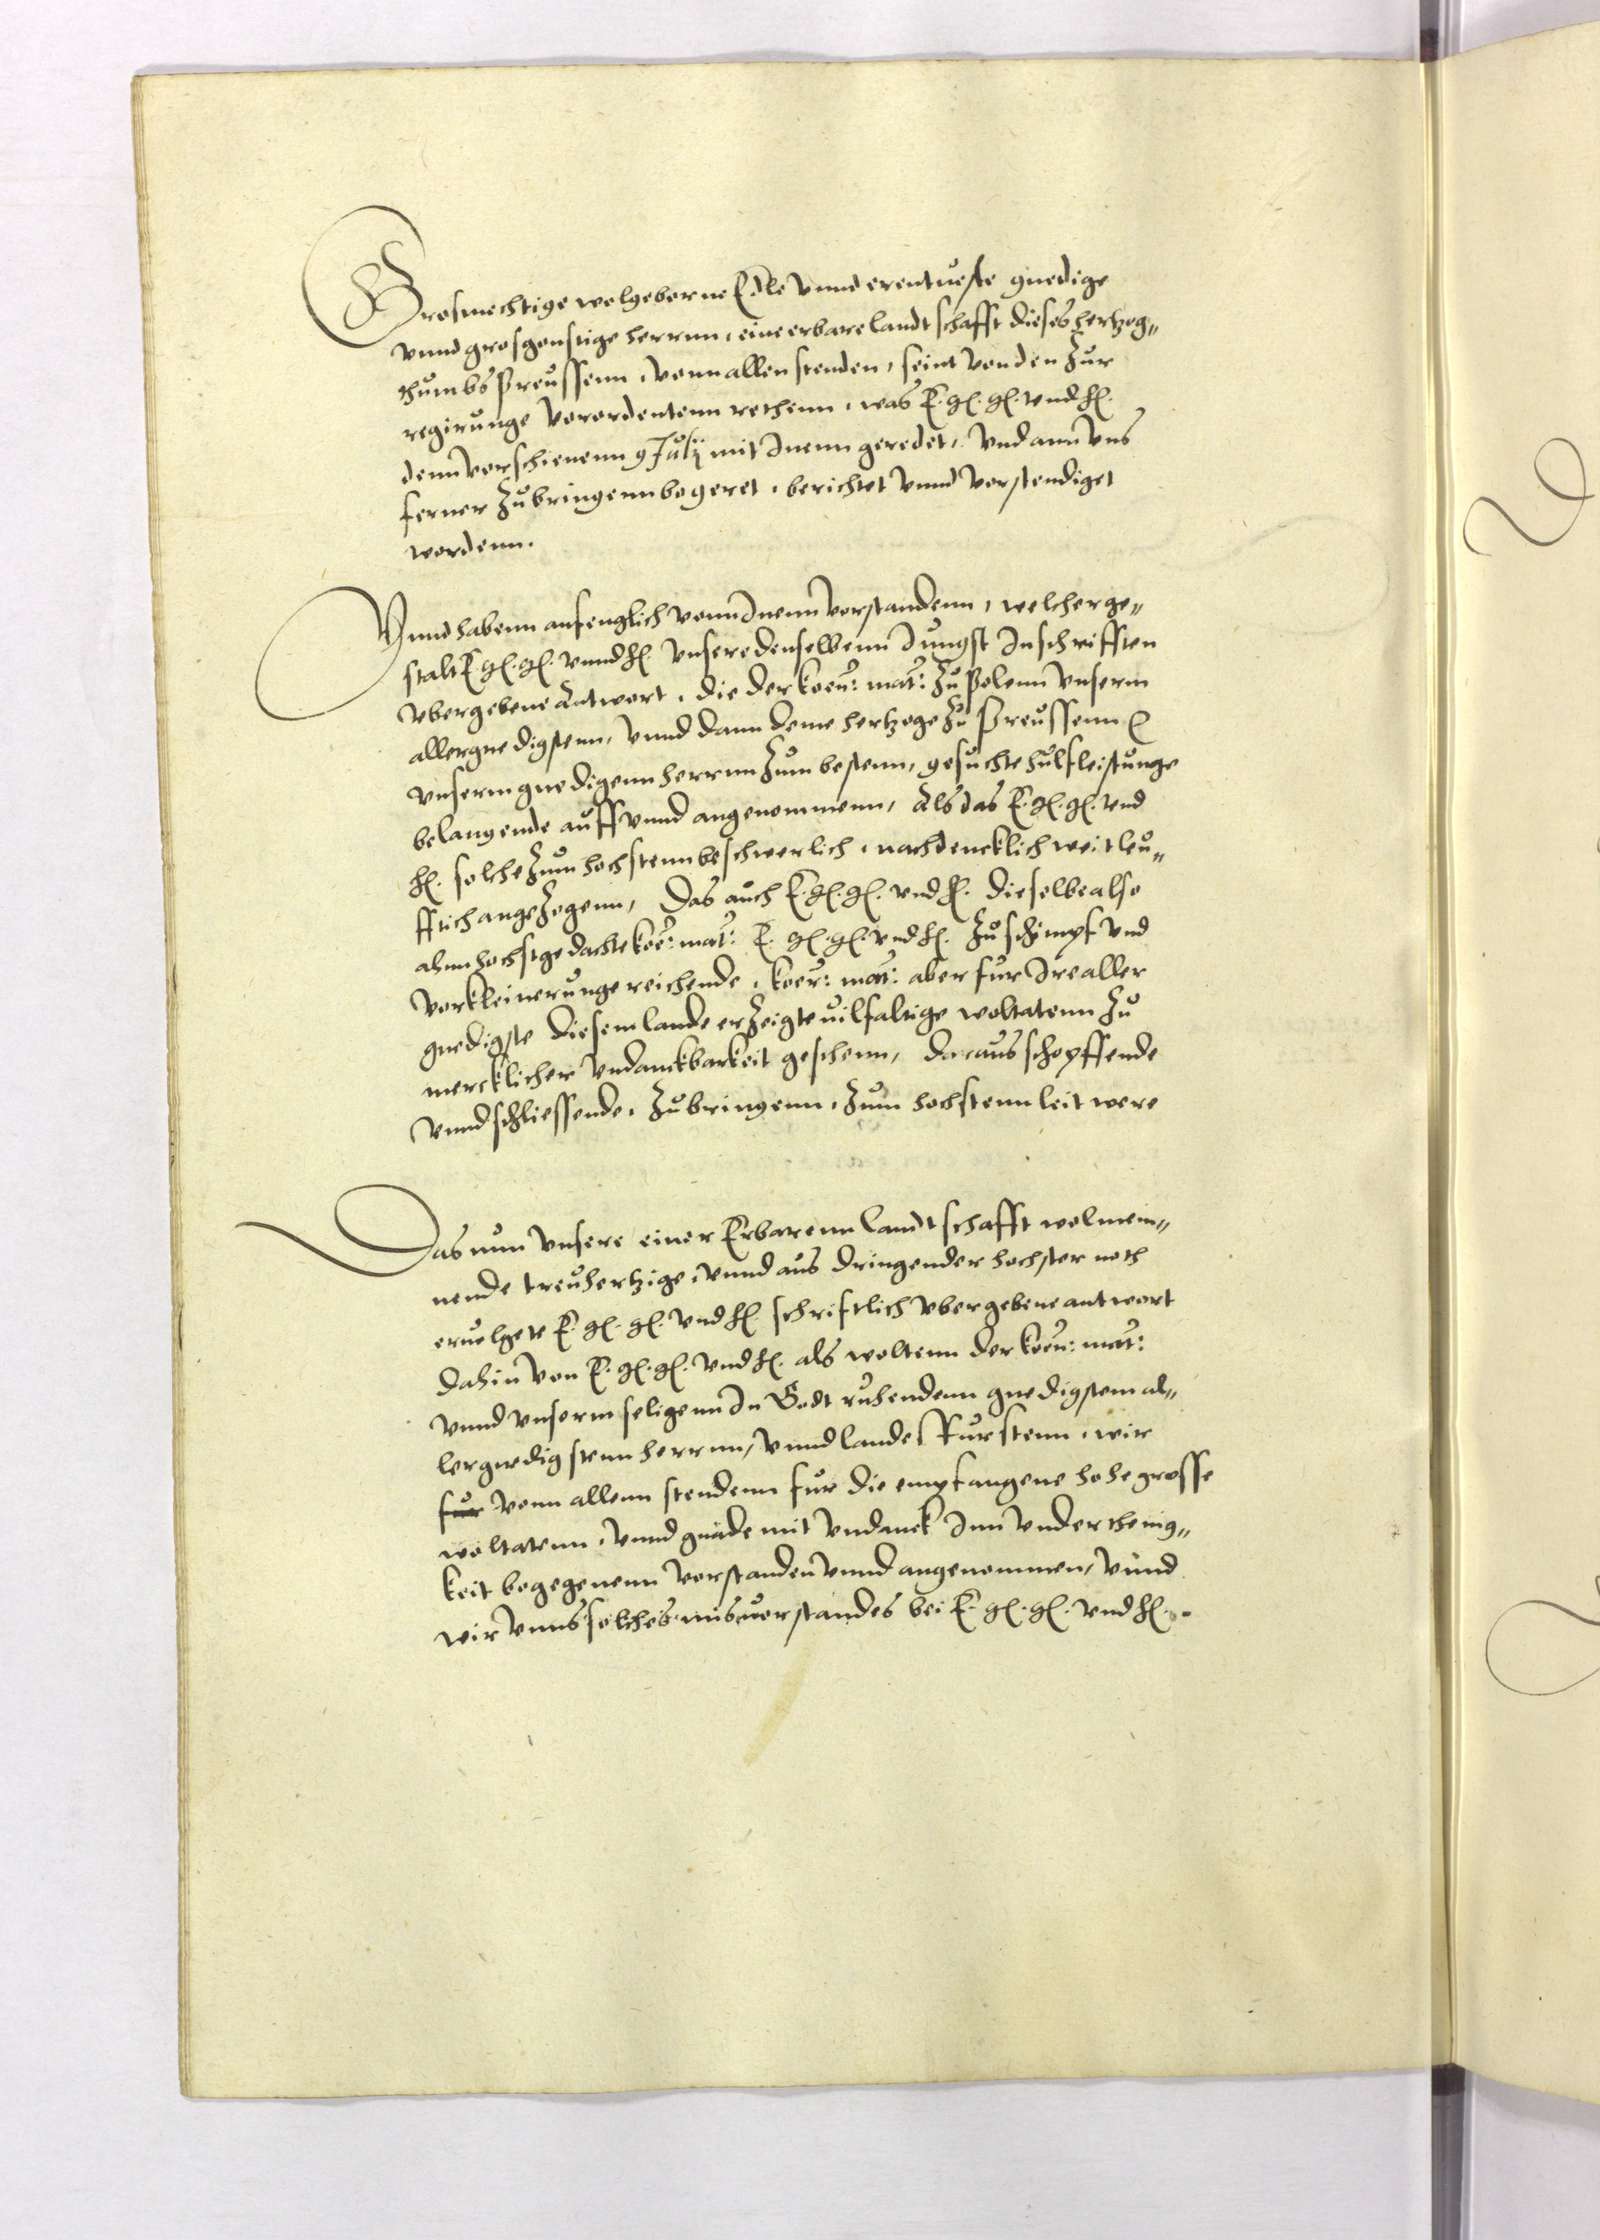 Grosmechtige wolgeborne Edle vnnd erentueste gnedige
vnnd grosgonstige herrnn, eine erbare landtschafft dieses hertzog„
thumbs Preussenn, vonn allen stenden, seint von den zur
regirunge verordentenn rethenn, was E. g. g. vnd h.
denn verschienenn 9 July mit Inenn geredet, vnd ann vns
ferner zubringenn begeret, berichtet vnnd verstendiget
wordenn.
Vnnd habenn anfenglich vonn Inenn verstandenn, welcher ge„
stalt E. g. g. vnnd h. vnsere denselbenn Jungst In schrifften
vbergebene Antwort, die der koen: mat: zu Polenn vnserm
allergnedigstenn, vnnd dann deme hertzoge zu Preussenn
vnserm gnedigenn herrnn zum bestenn, gesuchte hulfleistunge
belangende auff vnnd angenommenn, Als das E. g. g. vnd
h. solche zum hochstenn beschwerlich, nachdencklich weitleu„
fftich angezogenn, Das auch E. g. g. vnd h. dieselbe also
ahnn hochstgedachte koe: mat: E. g. g. vnd h. zu schimpf vnd
verkleinerunge reichende, koer: mat: aber fur Ire aller
gnedigste diesem lande erzeigte vilfaltige woltatenn zu
mercklicher vndanckbarkeit geschenn, daraus schopffende
vnnd schliessende, zubringenn, zum hochstenn leit were
Das nun vnsere einer Erbarenn landtschafft wolmein„
nende treuhertzige, vnnd aus dringender hochster noth
eruolgete E. g. g. vnd h. schriftlich vbergebene antwort
dahin von E. g. g. vnd h. als woltenn der koen: mat:
vnnd vnserm seligenn In Godt ruhendenn gnedigstem al„
lergnedigstenn herrnn, vnnd landes Furstenn, wir
fur vonn allenn stendenn fur die empfangene hohe grosse
woltatenn, vnnd gnade mit vndanck Inn vnderthenig„
keit begegenenn verstanden vnnd angenommen, vnnd
wir vnns solches misuerstandes bei E. g. g. vnd h.